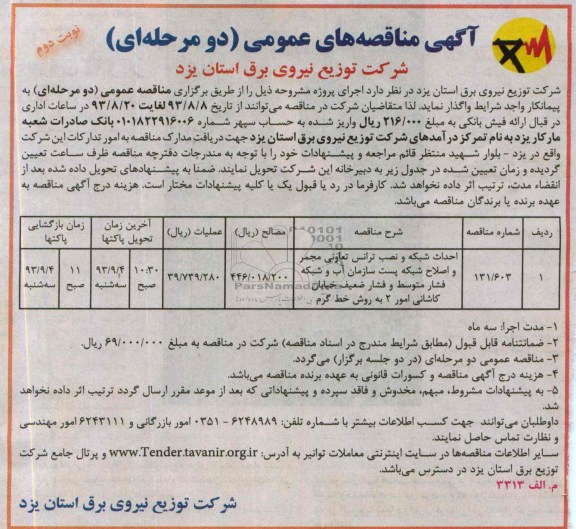 نوبت دوم
آگهی مناقصه‌های عمومی (دو مرحله‌ای)
شرکت توزیع نیروی برق استان یزد
شرکت توزیع نیروی برق استان یزد در نظر دارد اجرای پروژه مشروحه ذیل را از طریق برگزاری مناقصه عمومی (دو مرحله‌ای) به
پیمانکار واجد شرایط واگذار نماید. لذا متقاضیان شرکت در مناقصه می‌توانند از تاریخ ۹۳/۸/۸ لغایت ۹۳/۸/۲۰ در ساعات اداری
در قبال ارائه فیش بانکی به مبلغ ۲۱۶/۰۰۰ ریال واریز شده به حساب سپهر شماره ۰۱۰۱۸۲۲۹۱۶۰۰۶ بانک صادرات شعبه
مارکار یزد به نام تمرکز درآمدهای شرکت توزیع نیروی برق استان یزد جهت دریافت مدارک مناقصه به امور تدارکات این شرکت
واقع در یزد - بلوار شهید منتظر قائم مراجعه و پیشنهادات خود را با توجه به مندرجات دفترچه مناقصه ظرف ساعت تعیین
گردیده و زمان تعیین شده در جدول زیر به دبیرخانه این شرکت تحویل نمایند. ضمنا به پیشنهادهای تحویل داده شده بعد از
انقضاء مدت، ترتیب اثر داده نخواهد شد. کارفرما در رد یا قبول یک یا کلیه پیشنهادات مختار است. هزینه درج آگهی مناقصه به
عهده برنده یا برندگان مناقصه می‌باشد.
ردیف شماره مناقصه شرح مناقصه مصالح (ریال) عملیات (ریال) آخرین زمان تحویل پاکتها زمان بازگشایی پاکتها
۱ ۱۳۱/۶۰۳ احداث شبکه و نصب ترانس تعاونی مجمر و اصلاح شبکه پست سازمان آب و شبکه فشار متوسط و فشار ضعیف خیابان کاشانی امور ۲ به روش خط گرم ۴۴۶/۰۱۸/۲۰۰ ۳۹/۷۳۹/۲۸۰ ۱۰:۳۰ صبح ۹۳/۹/۴ سه‌شنبه ۱۱ صبح ۹۳/۹/۴ سه‌شنبه
۱- مدت اجرا: سه ماه
۲- ضمانتنامه قابل قبول (مطابق شرایط مندرج در اسناد مناقصه) شرکت در مناقصه به مبلغ ۶۹/۰۰۰/۰۰۰ ریال.
۳- مناقصه عمومی دو مرحله‌ای (در دو جلسه برگزار) می‌گردد.
۴- هزینه درج آگهی مناقصه و کسورات قانونی به عهده برنده مناقصه می‌باشد.
۵- به پیشنهادات مشروط، مبهم، مخدوش و فاقد سپرده و پیشنهاداتی که بعد از موعد مقرر ارسال گردد ترتیب اثر داده نخواهد
شد.
داوطلبان می‌توانند جهت کسب اطلاعات بیشتر با شماره تلفن: ۶۲۴۸۹۸۹ - ۰۳۵۱ امور بازرگانی و ۶۲۴۳۱۱۱ امور مهندسی
و نظارت تماس حاصل نمایند.
سایر اطلاعات مناقصه‌ها در سایت اینترنتی معاملات توانیر به آدرس: www.Tender.tavanir.org.ir و پرتال جامع شرکت
توزیع برق استان یزد در دسترس می‌باشد.
م. الف ۳۳۱۳
شرکت توزیع نیروی برق استان یزد